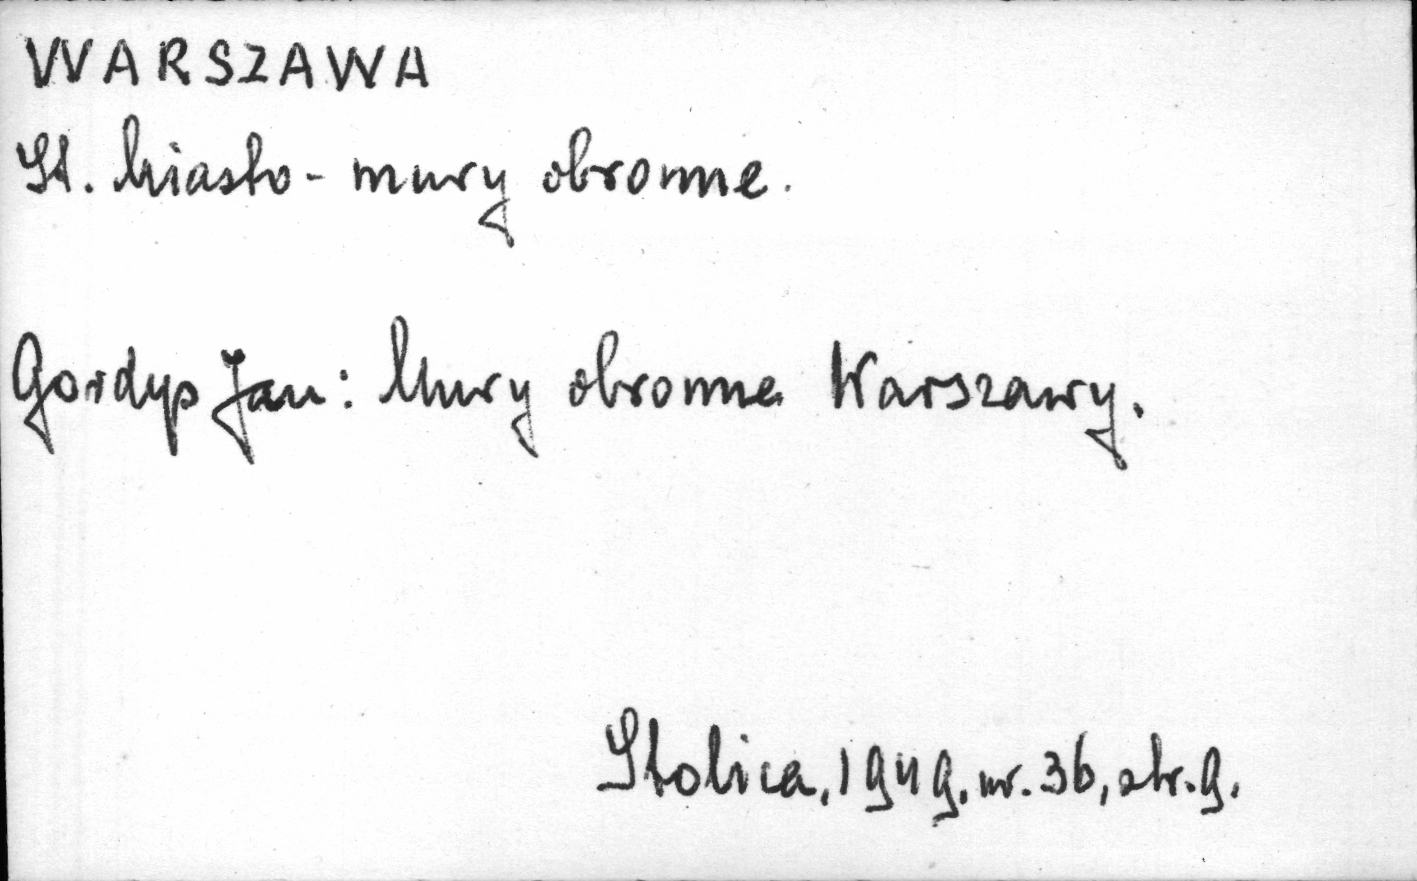 WARSZAWA
St. Miasto - mury obronne.
Gordys Jan: Mury obronne Warszawy.
Stolica, 1949, nr. 36, str. 9.